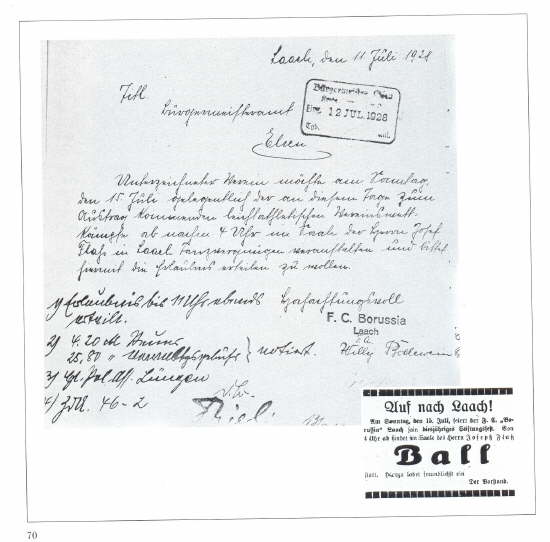 Laach, den 11 Juli 1928
Titl.
Bürgermeisteramt
Elsen
Bürgermeister Elsen
Eing. 12 JUL. 1928
Tgb.
Unterzeichneter Verein möchte am Sonntag,
den 15. Juli gelegentlich der an diesem Tage zum
Austrag kommenden leichtathletischen Vereinswett-
kämpfe ab nachm 4 Uhr im Saale des Herrn Josef
Floß in Laach Tanzvergnügen veranstalten und bittet
hiermit die Erlaubnis erteilen zu wollen.
1) Erlaubnis bis 11 Uhr abends Hochachtungsvoll
erteilt.
F. C. Borussia
Laach
2) 4.20 M Steuer
25,80 " notiert. Willy
3) Pol.
4) Z.d.A. 46-2
Auf nach Laach!
Am Sonntag, den 15. Juli, feiert der F. C. „Bo-
russia“ Laach sein diesjähriges Stiftungsfest. Von
4 Uhr ab findet im Saale des Herrn Joseph Floß
Ball
statt. Hierzu ladet freundlichst ein
Der Vorstand.
70